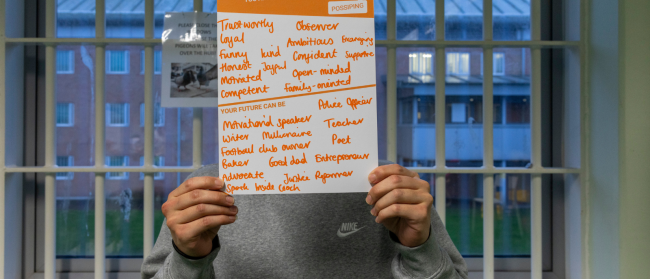 POSSIPING
Trustworthy Observer
Loyal Ambitious Encouraging
Funny kind Confident Supportive
Honest Joyful
Motivated Open-minded
Competent Family-oriented
YOUR FUTURE CAN BE Police Officer
Motivational speaker Teacher
Writer Millionaire
Football club owner Poet
Baker Good dad Entrepreneur
Advocate Justice
Spark Inside Coach
NIKE